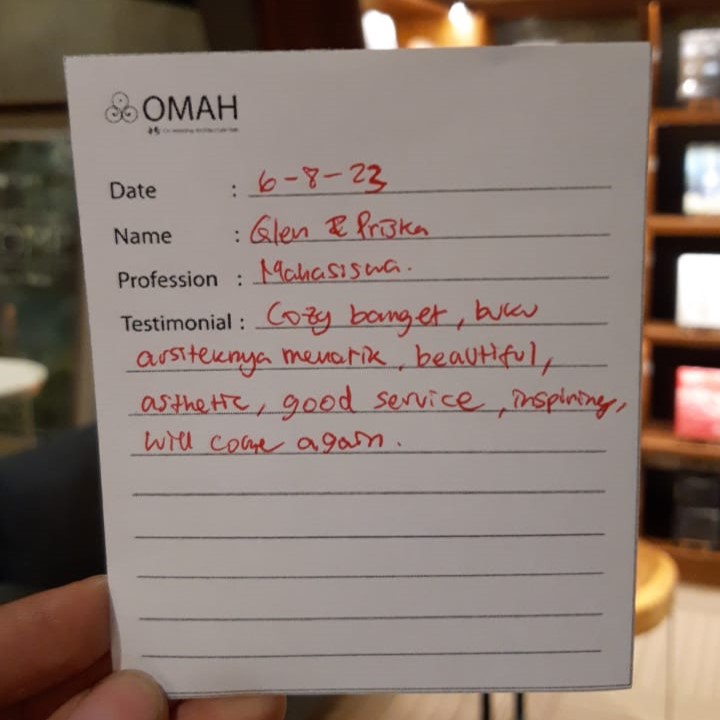 OMAH
Date : 6-8-23
Name : Glen & Priska
Profession : Mahasiswa.
Testimonial : Cozy banget, buku
arsiteknya menarik, beautiful,
asthetic, good service, inspiring,
will come again.